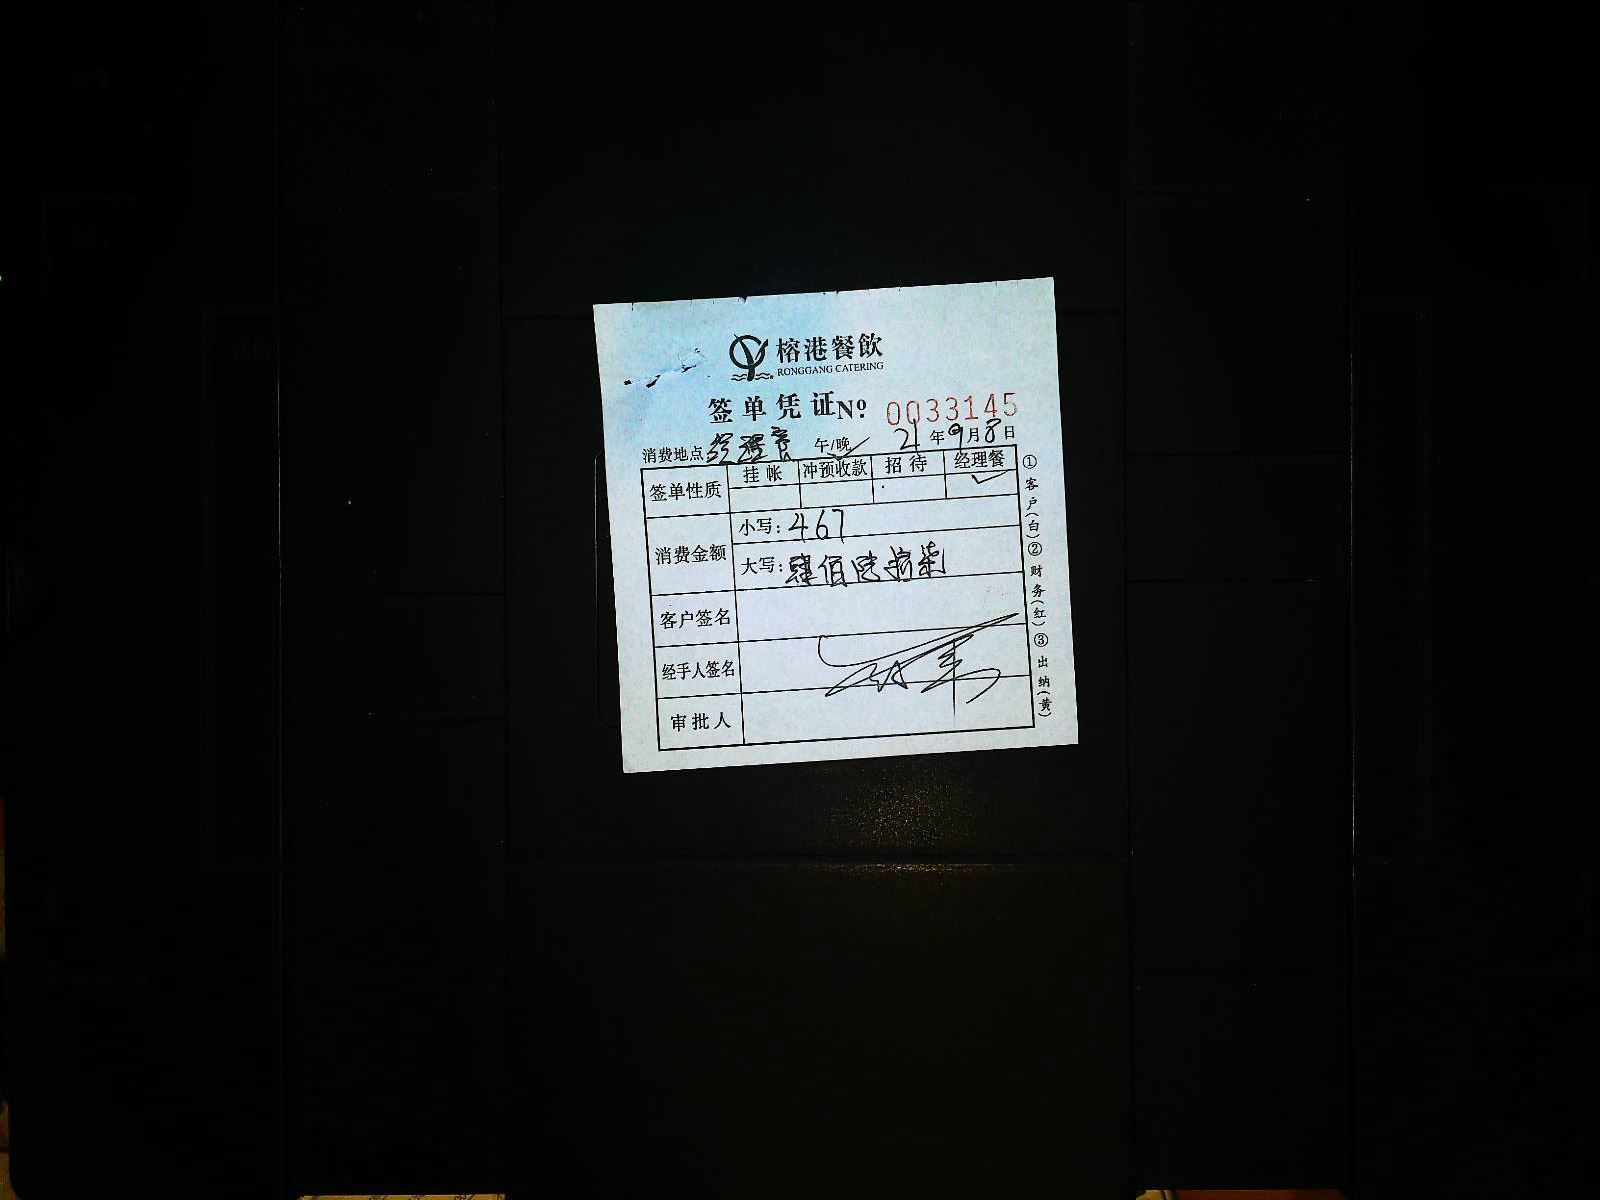 榕港餐飲
RONGGANG CATERING
签单凭证 Nº 0033145
消费地点 经理餐 午/晚✓ 21年9月8日
签单性质 挂帐 冲预收款 招待 经理餐
✓
消费金额 小写：467
大写：肆佰陆拾柒
客户签名
经手人签名
审批人
①客户(白)②财务(红)③出纳(黄)